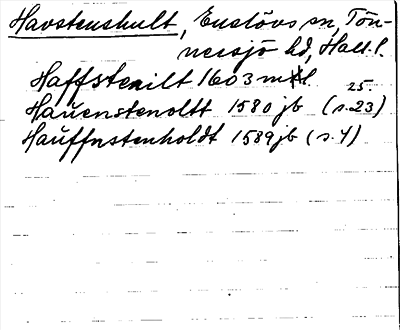 Havstenshult, Enslövs sn, Tön-
nersjö hd, Hall. l.
Haffstenilt 1603 mtl. 25.
Hauenstenoltt 1580 jb (s. 23)
Hauffnstenholdt 1589 jb (s. 4)